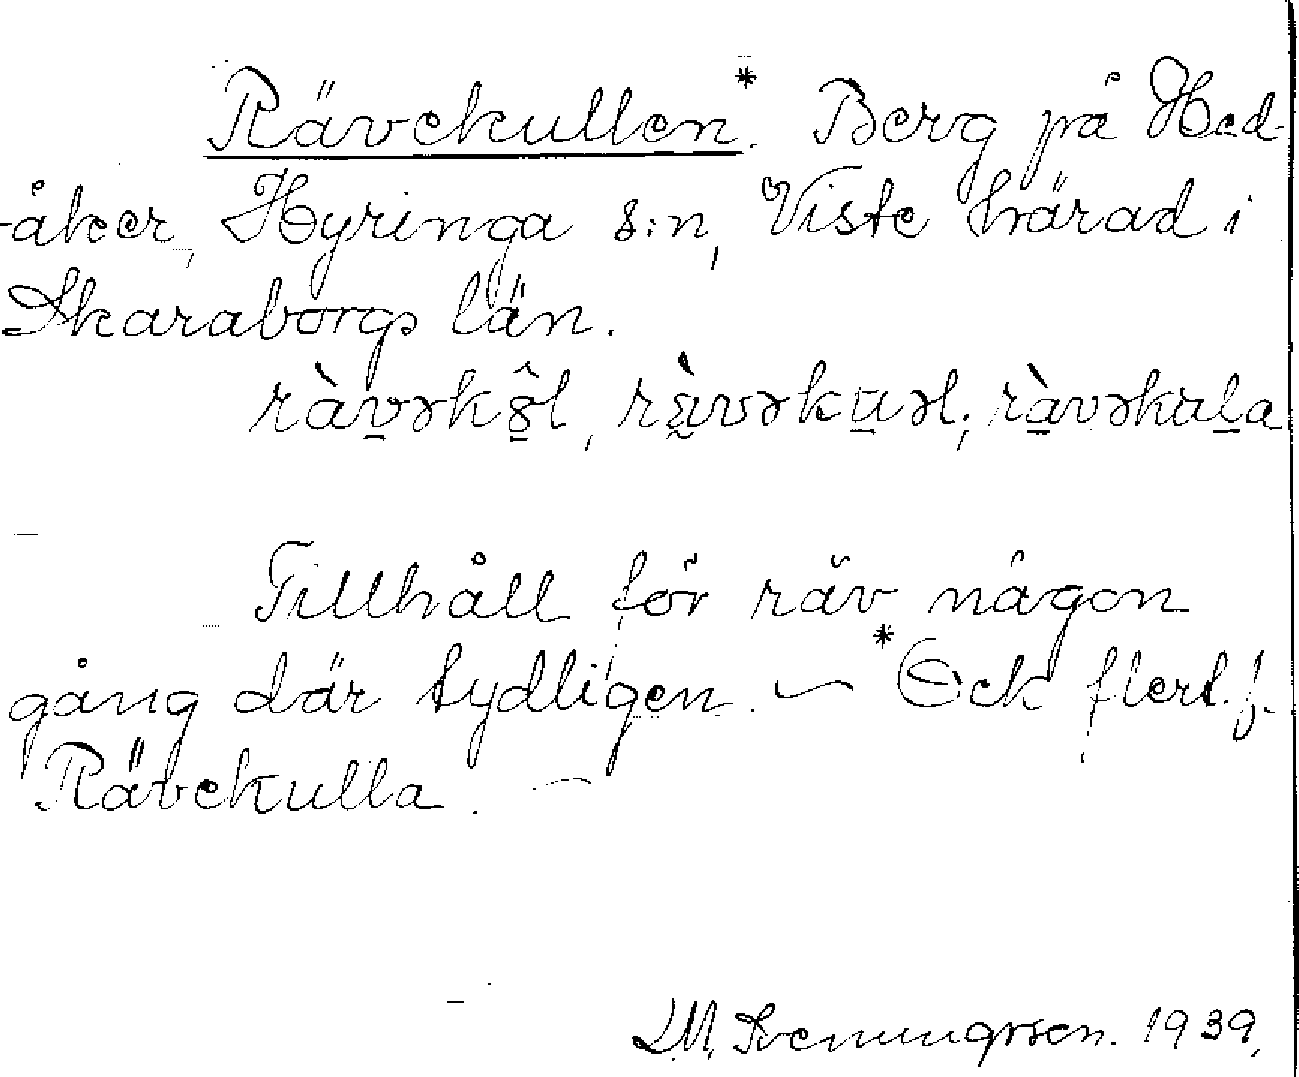 Rävekullen*. Berg på Hed-
-åker, Hyringa s:n, Viste härad i
Skaraborgs län.
Tillhåll för räv någon
gång där tydligen. — *Ock flert. f.
Rävekulla. —
L.M. Svenungsson. 1939.